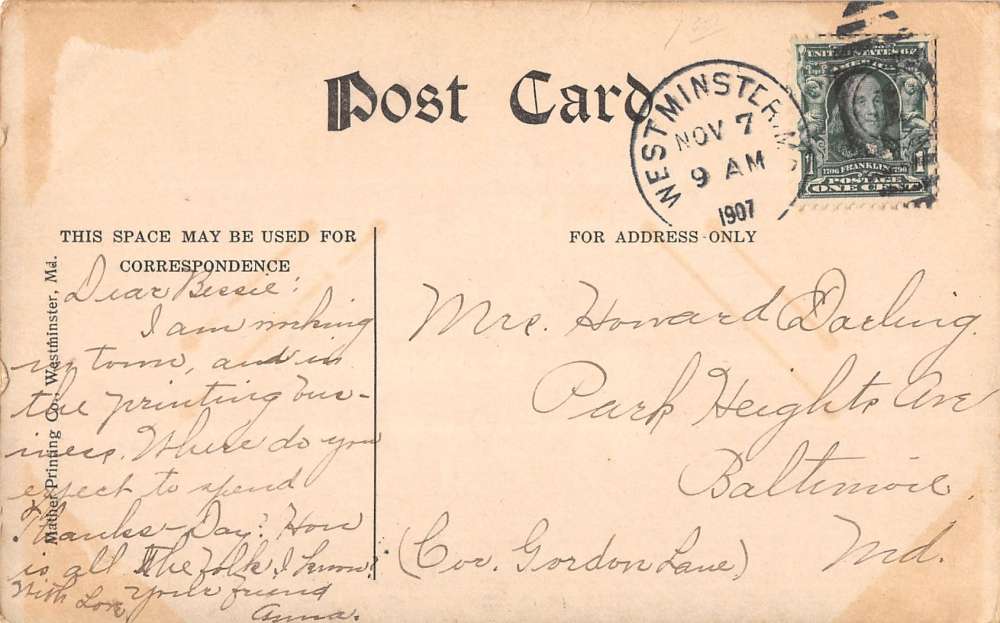 Post Card
WESTMINSTER, M
NOV 7
9 AM
1907
UNITED STATES OF
AMERICA
1706 FRANKLIN 1790
POSTAGE
ONE CENT
THIS SPACE MAY BE USED FOR
CORRESPONDENCE
FOR ADDRESS ONLY
Mather Printing Co., Westminster, Md.
Dear Bessie:
I am working
in town, and in
the printing bus-
iness. Where do you
expect to spend
Thanks-Day? How
is all the folk I know?
Your friend
With Love
Anna.
Mrs. Howard Darling.
Park Heights Ave
Baltimore
(Cor. Gordon Lane)
Md.